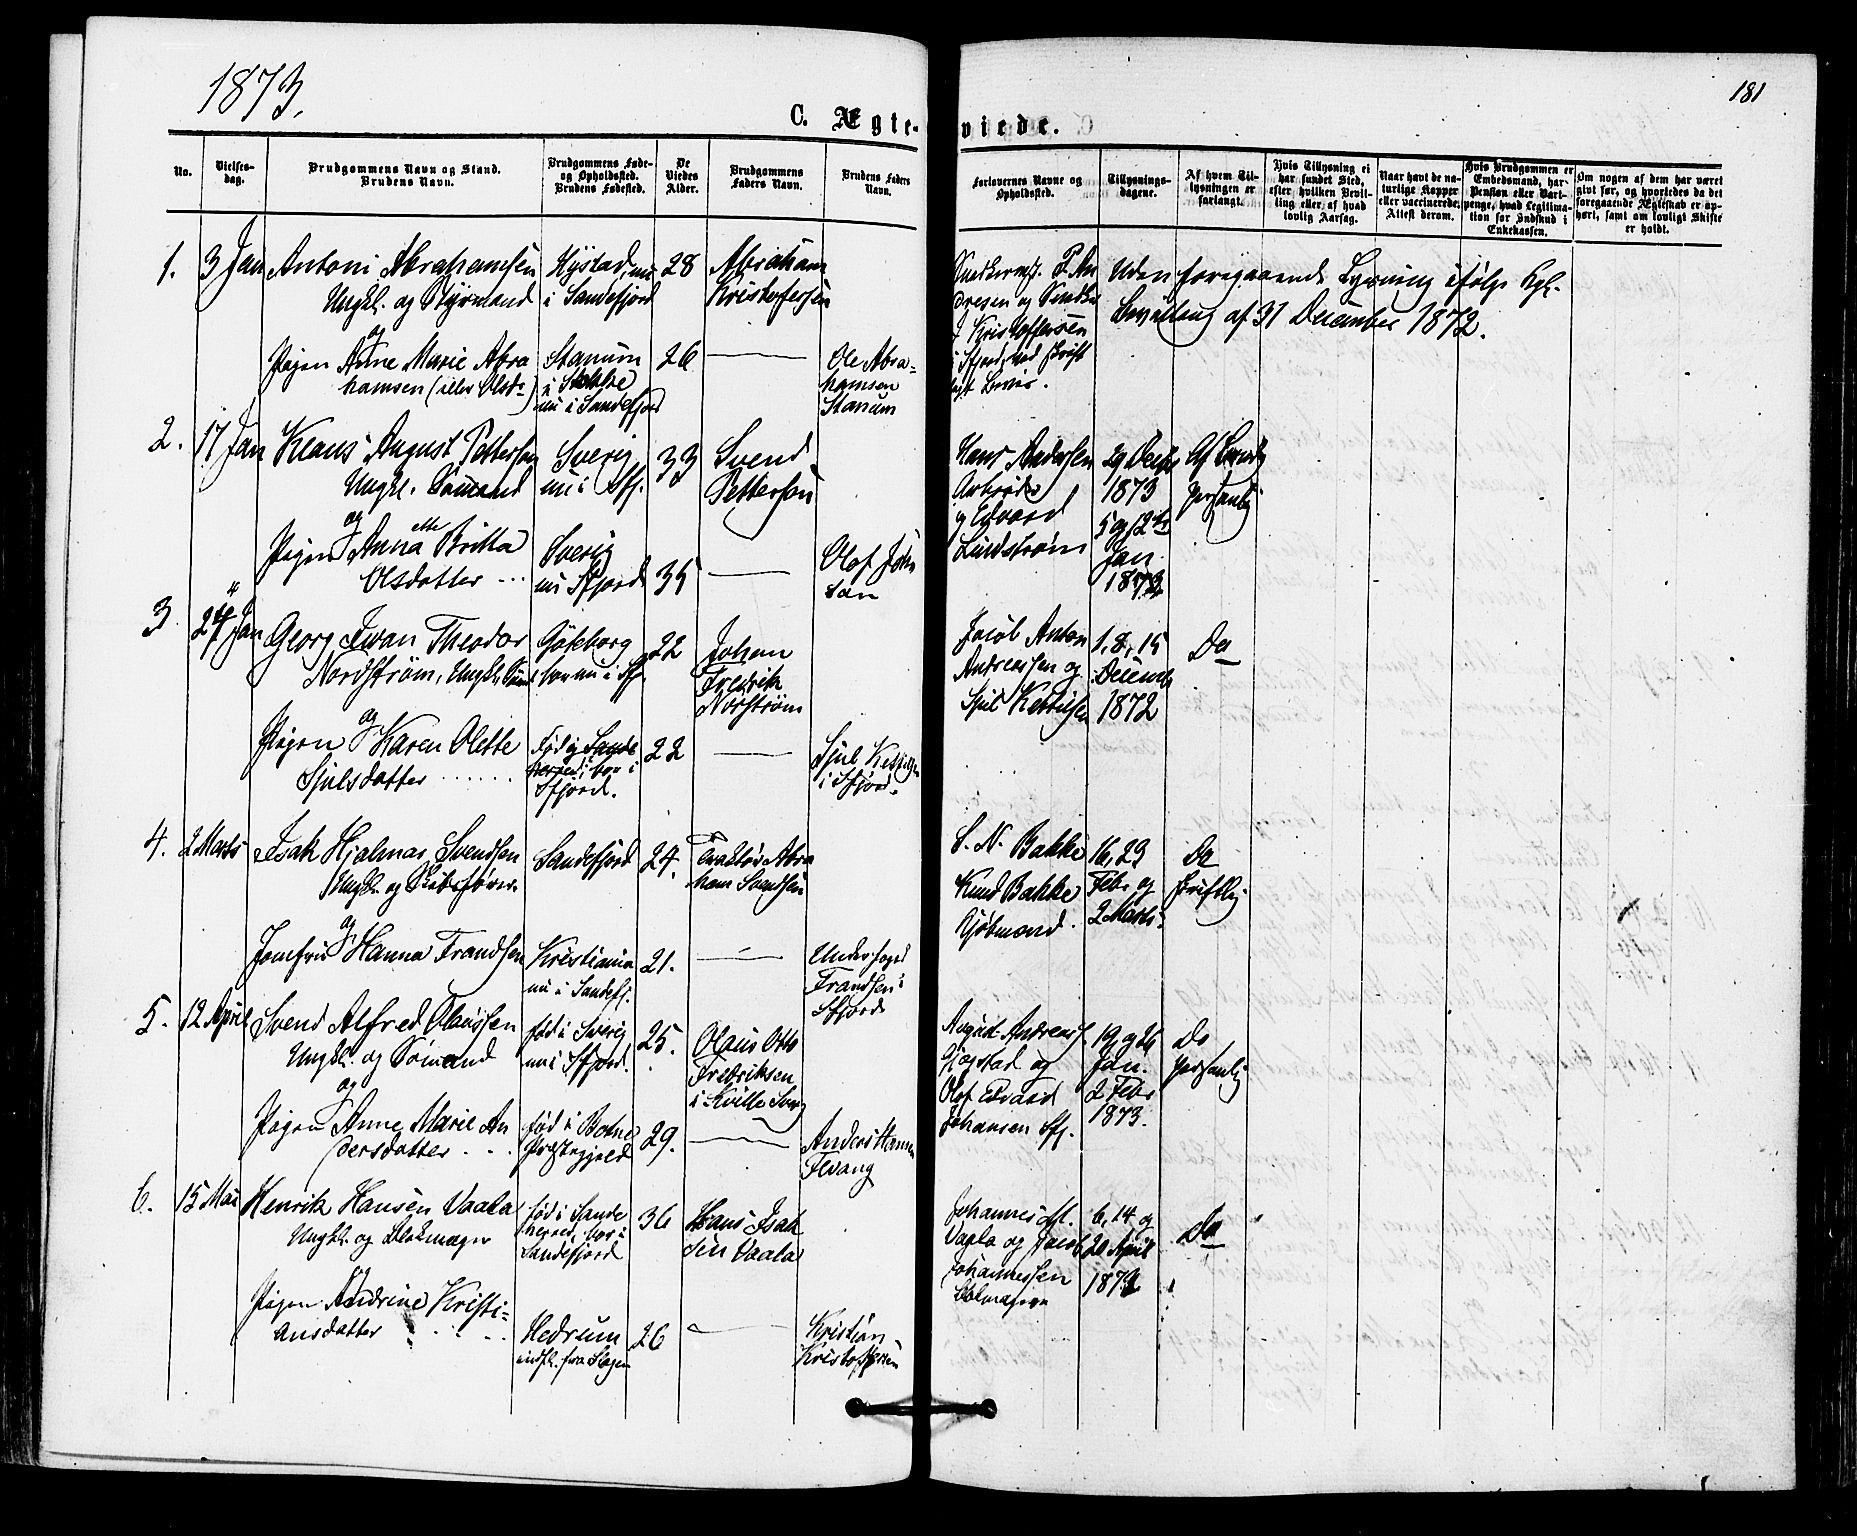 1873.
181
C. Ægte-viede.
No.
Vielses-
dag.
Brudgommens Navn og Stand.
Brudens Navn.
Brudgommens Føde-
og Opholdssted.
Brudens Fødested.
De
Viedes
Alder.
Brudgommens
Faders Navn.
Brudens Faders
Navn.
Forlovernes Navne og
Opholdssted.
Tillysnings-
dagene.
Af hvem Til-
lysningen er
forlangt.
Hvis Tillysning ei
har fundet Sted,
efter hvilken Bevil-
ling eller af hvad
lovlig Aarsag.
Naar havt de na-
turlige Kopper
eller vaccinerede.
Attest derom.
Hvis Brudgommen er
Embedsmand, har
Pension eller Vart-
penge, hvad Legitima-
tion for Indskud i
Enkekassen.
Om nogen af dem har været
givt før, og hvorledes da det
foregaaende Ægteskab er op-
hørt, samt om lovligt Skifte
er holdt.
1. 3 Jan Antoni Abrahamsen
Ungkl. og Styrmand
og
Pigen Anne Marie Abra
hamsen (eller Olsd.)
Hystad, nu
i Sandefjord
Stanum
i Stokke
nu i Sandefjord
28
26
Abraham
Kristofersen
Ole Abra-
hamsen
Stanum
Snedkerm. P. An
dresen og Snedker
J Kristoffersen
i Sfjord, ved skrift
ligt Bevis.
Uden foregaaende Lysning ifølge Kgl.
Bevilling af 31 December 1872.
2. 17 Jan Klaus August Pettersen
Ungkl. Sømand
og
Pigen Anna Britta
Olsdatter
Sverig
nu i Sfj.
Sverig
nu Sfjord
33
35
Svend
Pettersen
Olof John
son
Hans Andersen
Arbeider
og Edvard
Lindstrøm
29 Decbr
1873
5 og 12te
Jan
1873
Af Brudg
personlig
3. 24 Jan Georg Iwan Theodor
Nordstrøm, Ungkl.
og
Pigen Karen Olette
Sjulsdatter
Gøteborg
bor nu i Sfj.
Fød i Sande
herred, bor i
Sfjord.
22
22
Johan
Fredrik
Norstrøm
Sjul Kettilsen
i Sfjord.
Jacob Anton
Andreassen og
Sjul Kettilsen
1, 8, 15
Decemb
1872
Do
4. 2 Marts Isak Hjalmar Svendsen
Ungkl. og Skibsfører
og
Jomfru Hanna Frandsen
Sandefjord
Kristiania
nu i Sandefj.
24.
21.
Abra
ham Svendsen
Underfoged
Frandsen i
Sfjord
S. N. Bakke
Knud Bakke
Kjøbmand.
16, 23
Febr og
2 Marts
Do
skriftlig
5. 12 April Svend Alfred Olaussen
Ungkl. og Sømand
og
Pigen Anne Marie An
dersdatter
fød i Sverig
nu i Sfjord.
fød i Botne
Præstegjeld
25.
29.
Olaus Otto
Fredriksen
i Kville Sverig
Anders Hansen
Flvang
August Andreass.
Gjogstad og
Olof Edvard
Johansen Sfj.
19 og 26
Jan.
2 Febr
1873.
Do
personlig
6. 15 Mai Henrik Hansen Vaala
Ungkl. og Blokmager
og
Pigen Andrine Kristi-
ansdatter
fød i Sande
herred, bor i
Sandefjord
Hedrum
indfl. fra Slagen
36
26
Hans Isak
sen Vaala
Kristian
Kristoffersen
Johannes M.
Vaala og Jacob
Johannessen
6, 14 og
20 April
1873
Do